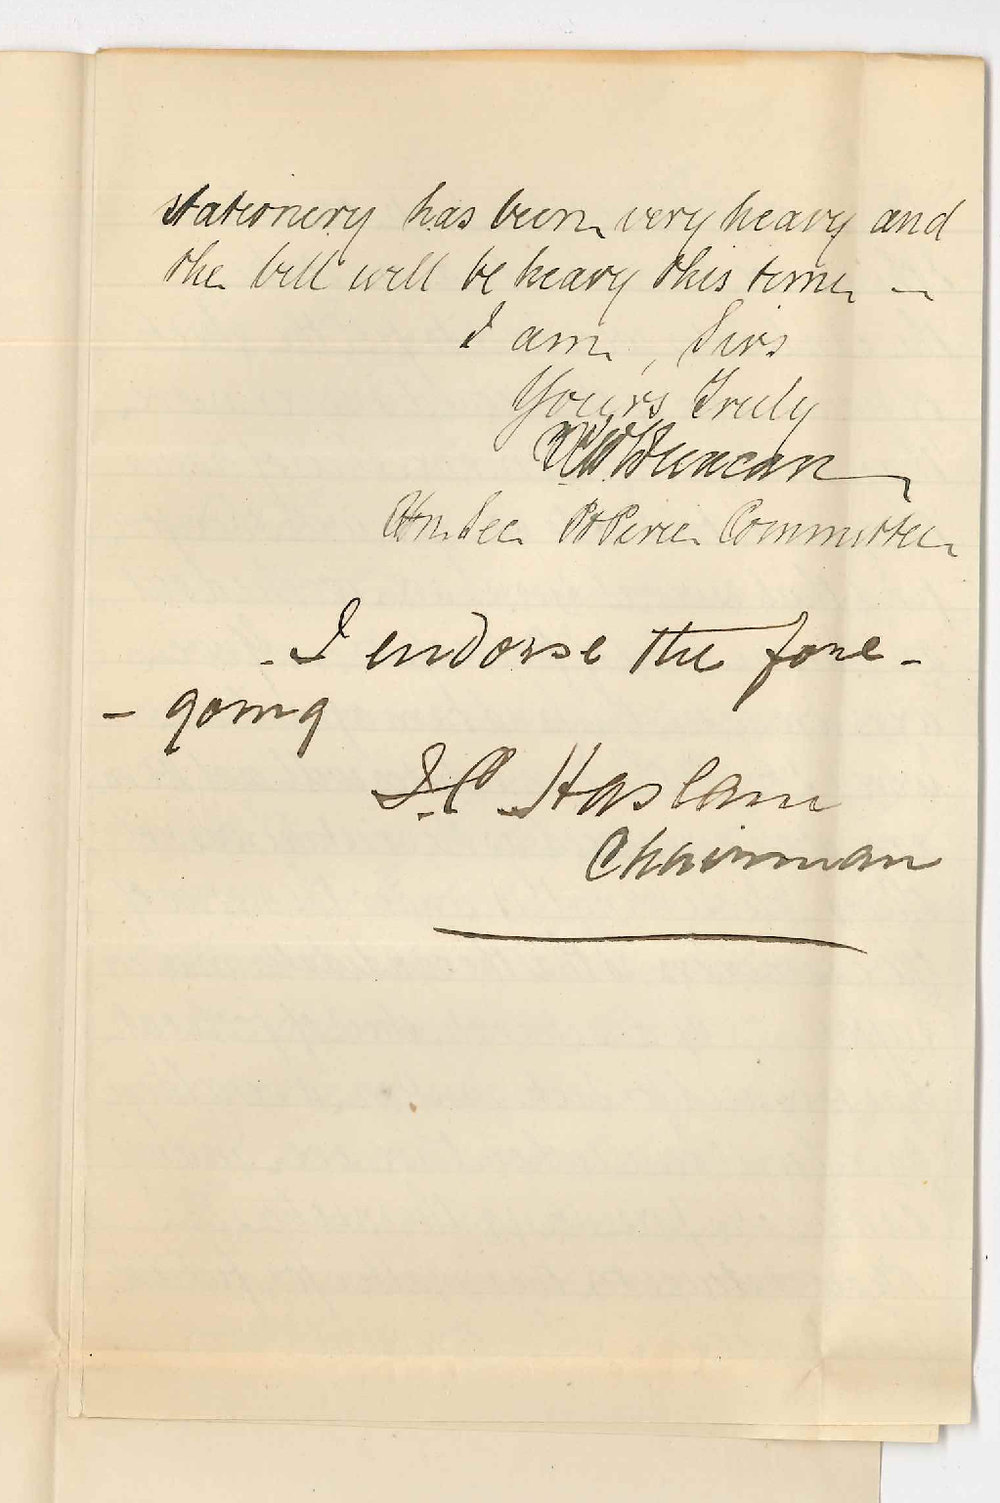 stationery has been very heavy and
the bill will be heavy this time —
I am, Sirs
Yours Truly
Duncan
Hon. Sec. Pt Pirie Committee
- I endorse the fore -
- going
J.C. Haslam
Chairman